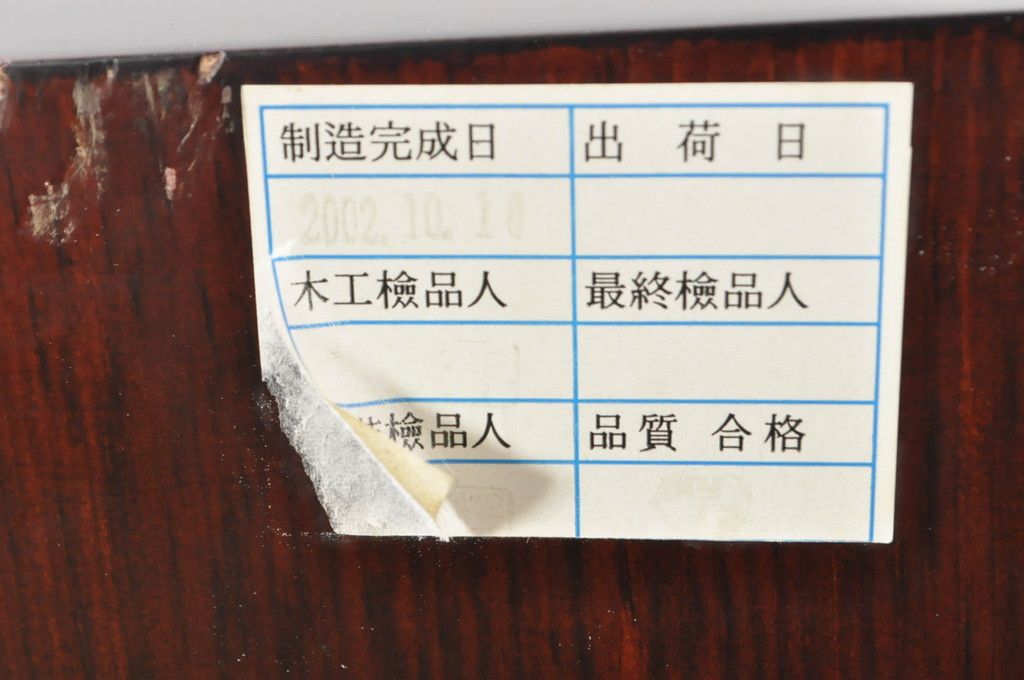 制造完成日 出 荷 日
2002.10.10
木工檢品人 最終檢品人
檢品人 品質 合格